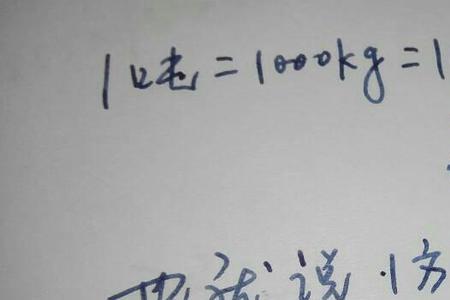 1吨=1000kg=1
也就说1方